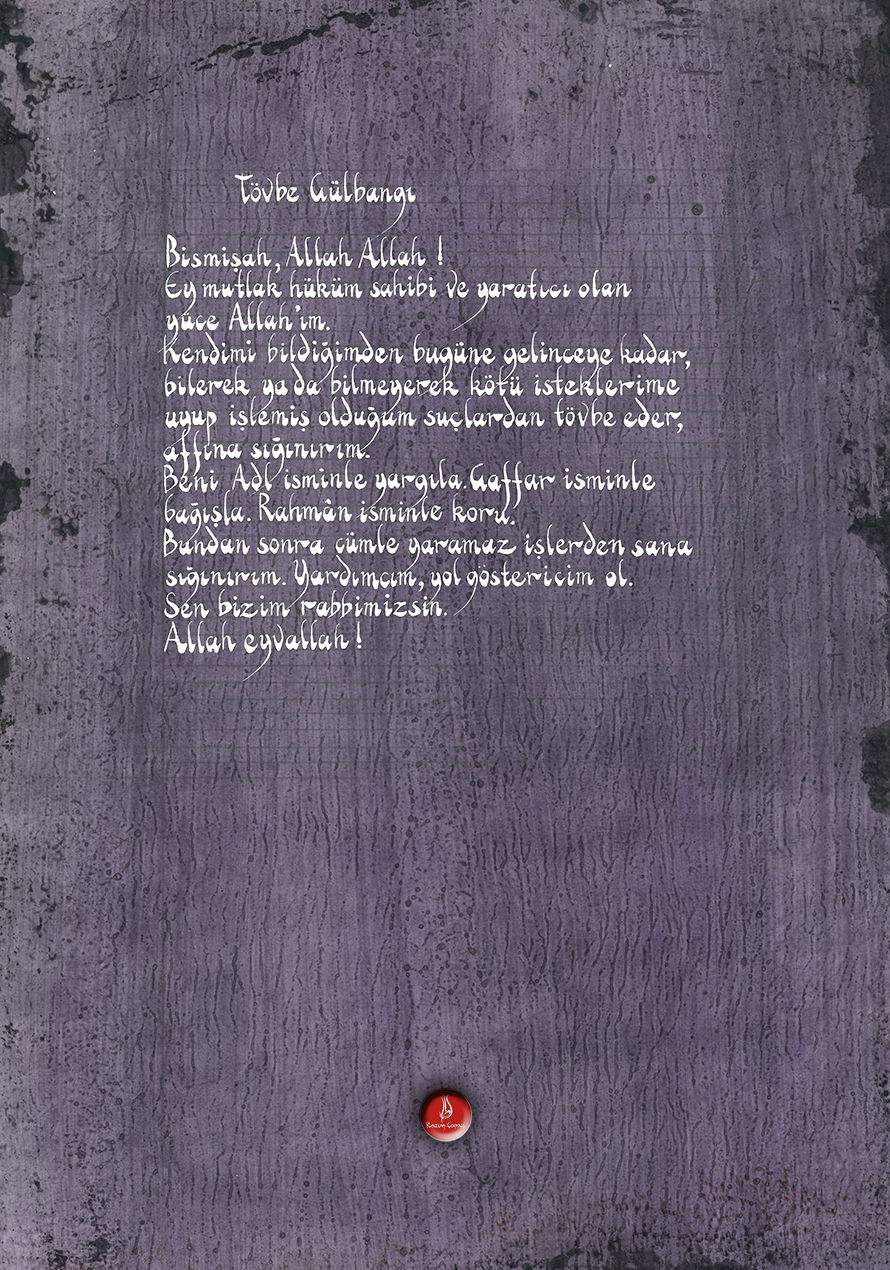 Tövbe Gülbangı
Bismişah, Allah Allah !
Ey mutlak hüküm sahibi ve yaratıcı olan
yüce Allah'ım.
Kendimi bildiğimden bugüne gelinceye kadar,
bilerek ya da bilmeyerek kötü isteklerime
uyup işlemiş olduğum suçlardan tövbe eder,
affına sığınırım.
Beni Adl isminle yargıla. Gaffar isminle
bağışla. Rahmân isminle koru.
Bundan sonra cümle yaramaz işlerden sana
sığınırım. Yardımcım, yol göstericim ol.
Sen bizim rabbimizsin.
Allah eyvallah !